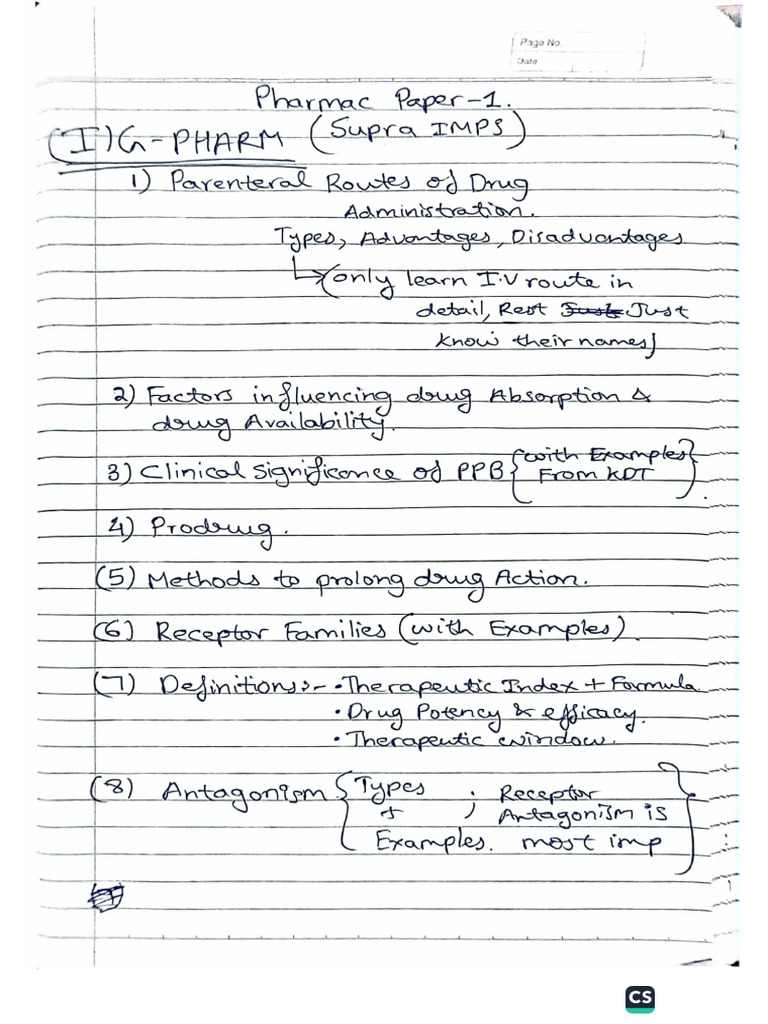 Page No.
Date
Pharmac Paper-1.
(I) G-PHARM (Supra IMPS)
1) Parenteral Routes of Drug
Administration.
Types, Advantages, Disadvantages
(only learn I.V route in
detail, Rest Just
know their names)
2) Factors influencing drug Absorption &
drug Availability.
3) Clinical Significance of PPB {with Examples
From KDT}.
4) Prodrug.
(5) Methods to prolong drug Action.
(6) Receptor Families (with Examples).
(7) Definitions:- • Therapeutic Index + Formula
• Drug Potency & efficacy.
• Therapeutic window.
(8) Antagonism { Types ; Receptor
+ Antagonism is
Examples. most imp }
CS